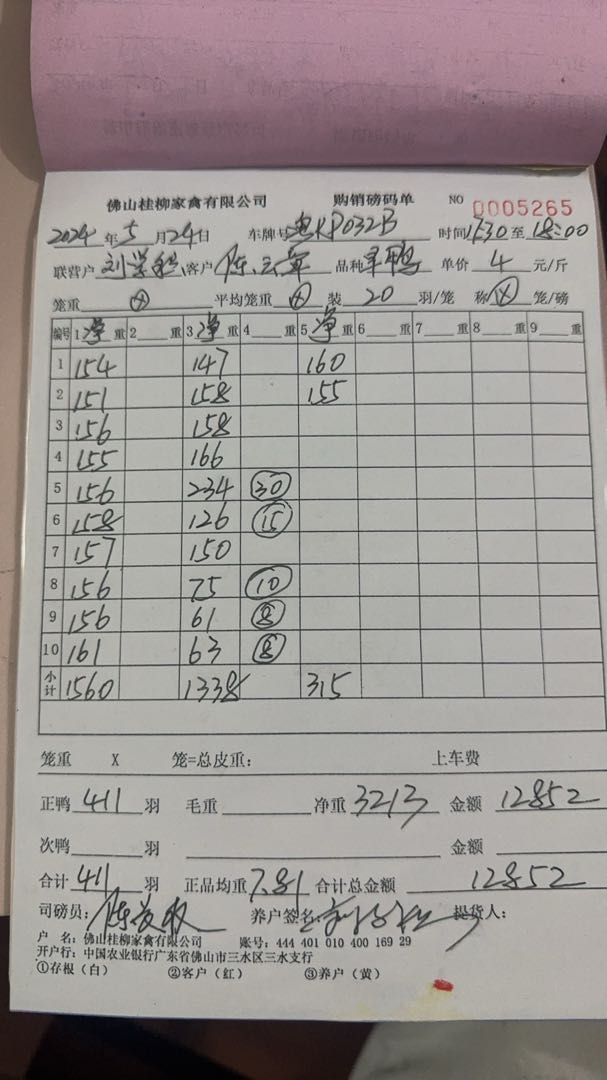 佛山桂柳家禽有限公司 购销磅码单 NO 0005265
2024年5月24日 车牌号粤KP032B 时间17:30至18:00
联营户 客户 陈 品种 鸭 单价 4 元/斤
笼重 平均笼重 装 20 羽/笼 称 笼/磅
编号 1净重 2 重 3净重 4 重 5净重 6 重 7 重 8 重 9 重
1 154 147 160
2 151 158 155
3 156 158
4 155 166
5 156 234 30
6 158 126 15
7 157 150
8 156 75 10
9 156 61 8
10 161 63 8
小计 1560 1338 315
笼重 X 笼=总皮重: 上车费
正鸭 411 羽 毛重 净重 3213 金额 12852
次鸭 羽 金额
合计 411 羽 正品均重 7.81 合计总金额 12852
司磅员: 陈 养户签名: 提货人:
户 名: 佛山桂柳家禽有限公司 账号: 444 401 010 400 169 29
开户行: 中国农业银行广东省佛山市三水区三水支行
①存根（白） ②客户（红） ③养户（黄）